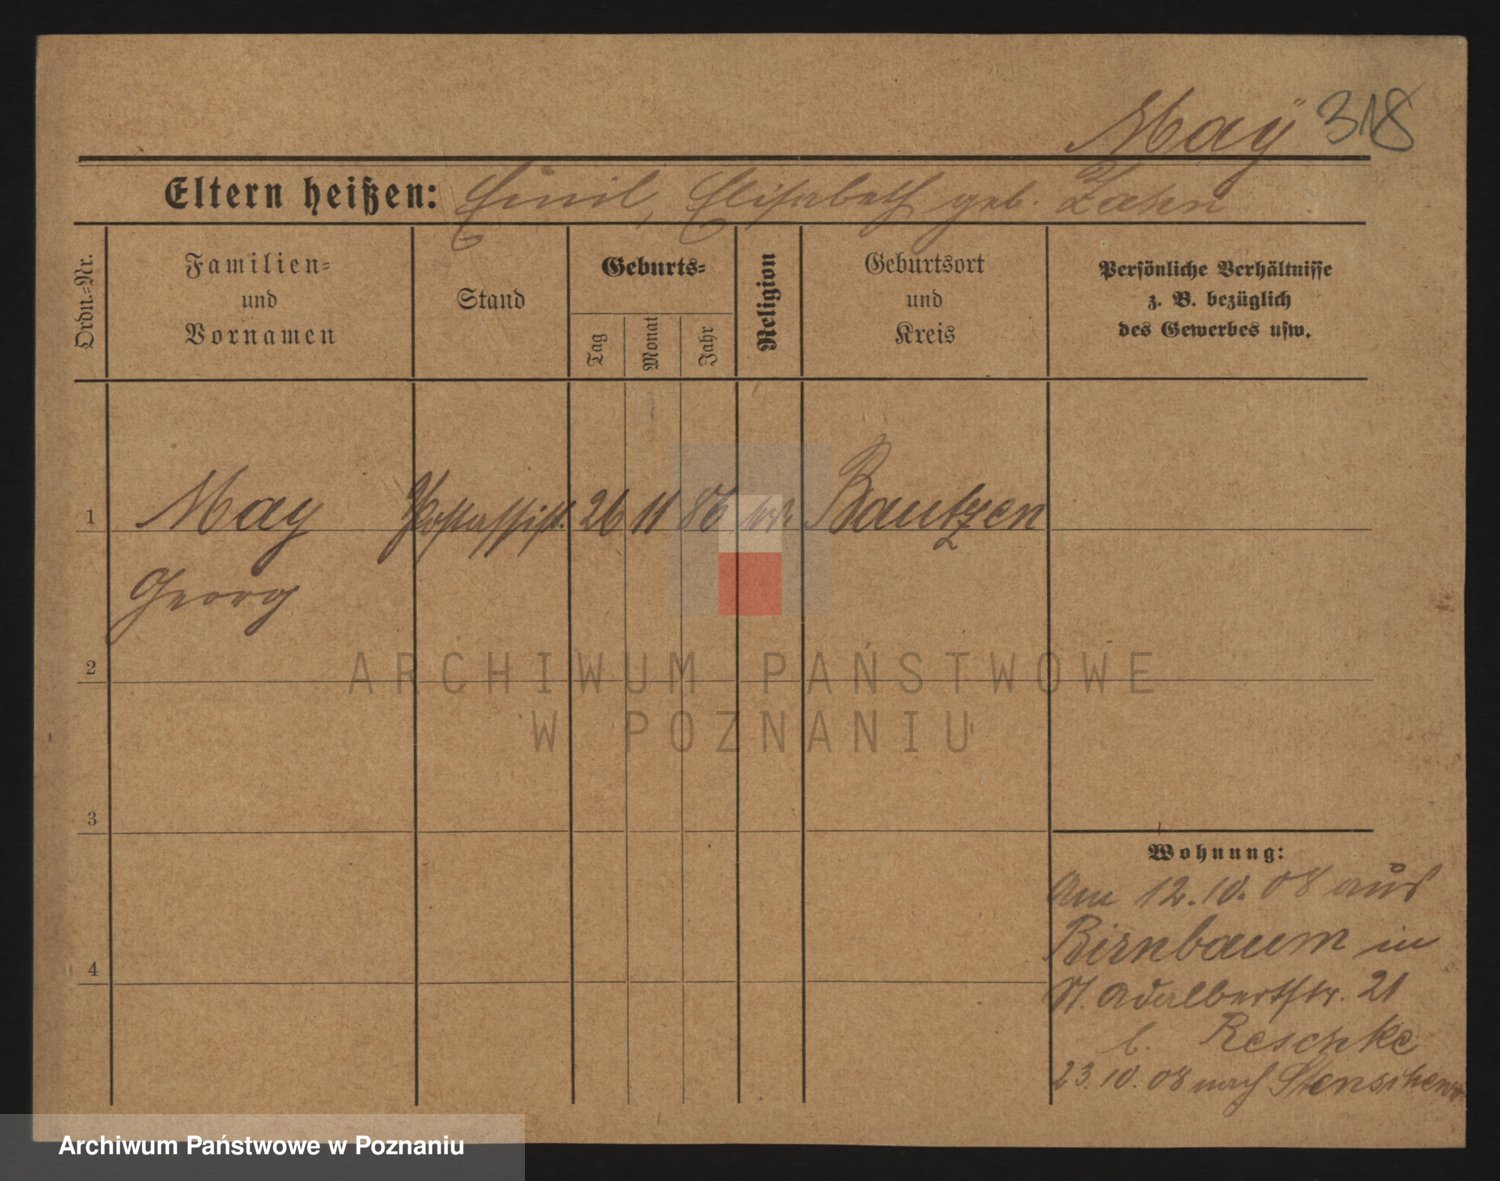 Maÿ 318
Eltern heißen: Emil, Elisabeth geb. Zahn
Ordn.-Nr.
Familien-
und
Vornamen
Stand
Geburts-
Tag
Monat
Jahr
Religion
Geburtsort
und
Kreis
Persönliche Verhältnisse
z. B. bezüglich
des Gewerbes usw.
1 May Postassist. 26 11 86 Bautzen
Georg
2
3
4
Wohnung:
Am 12.10.08 aus
Birnbaum in
St. Adalbertstr. 21
b. Reschke
23.10.08 nach
ARCHIWUM PAŃSTWOWE
W POZNANIU
Archiwum Państwowe w Poznaniu